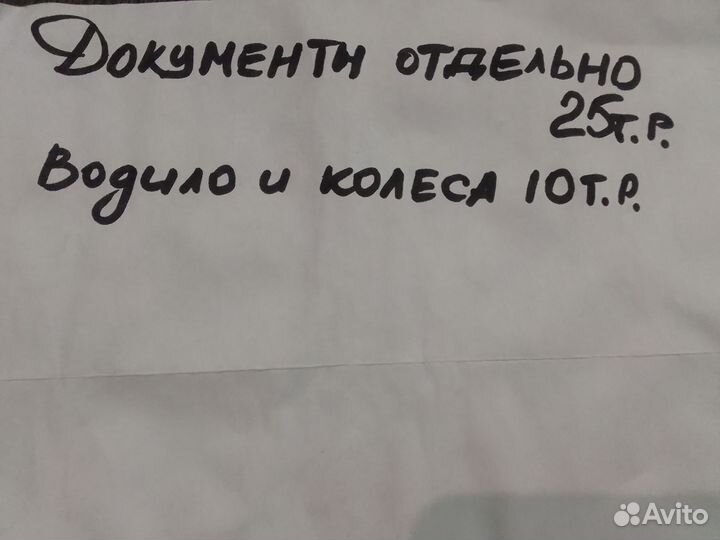 Документы отдельно
25т.р.
Водило и колеса 10т.р.
Avito